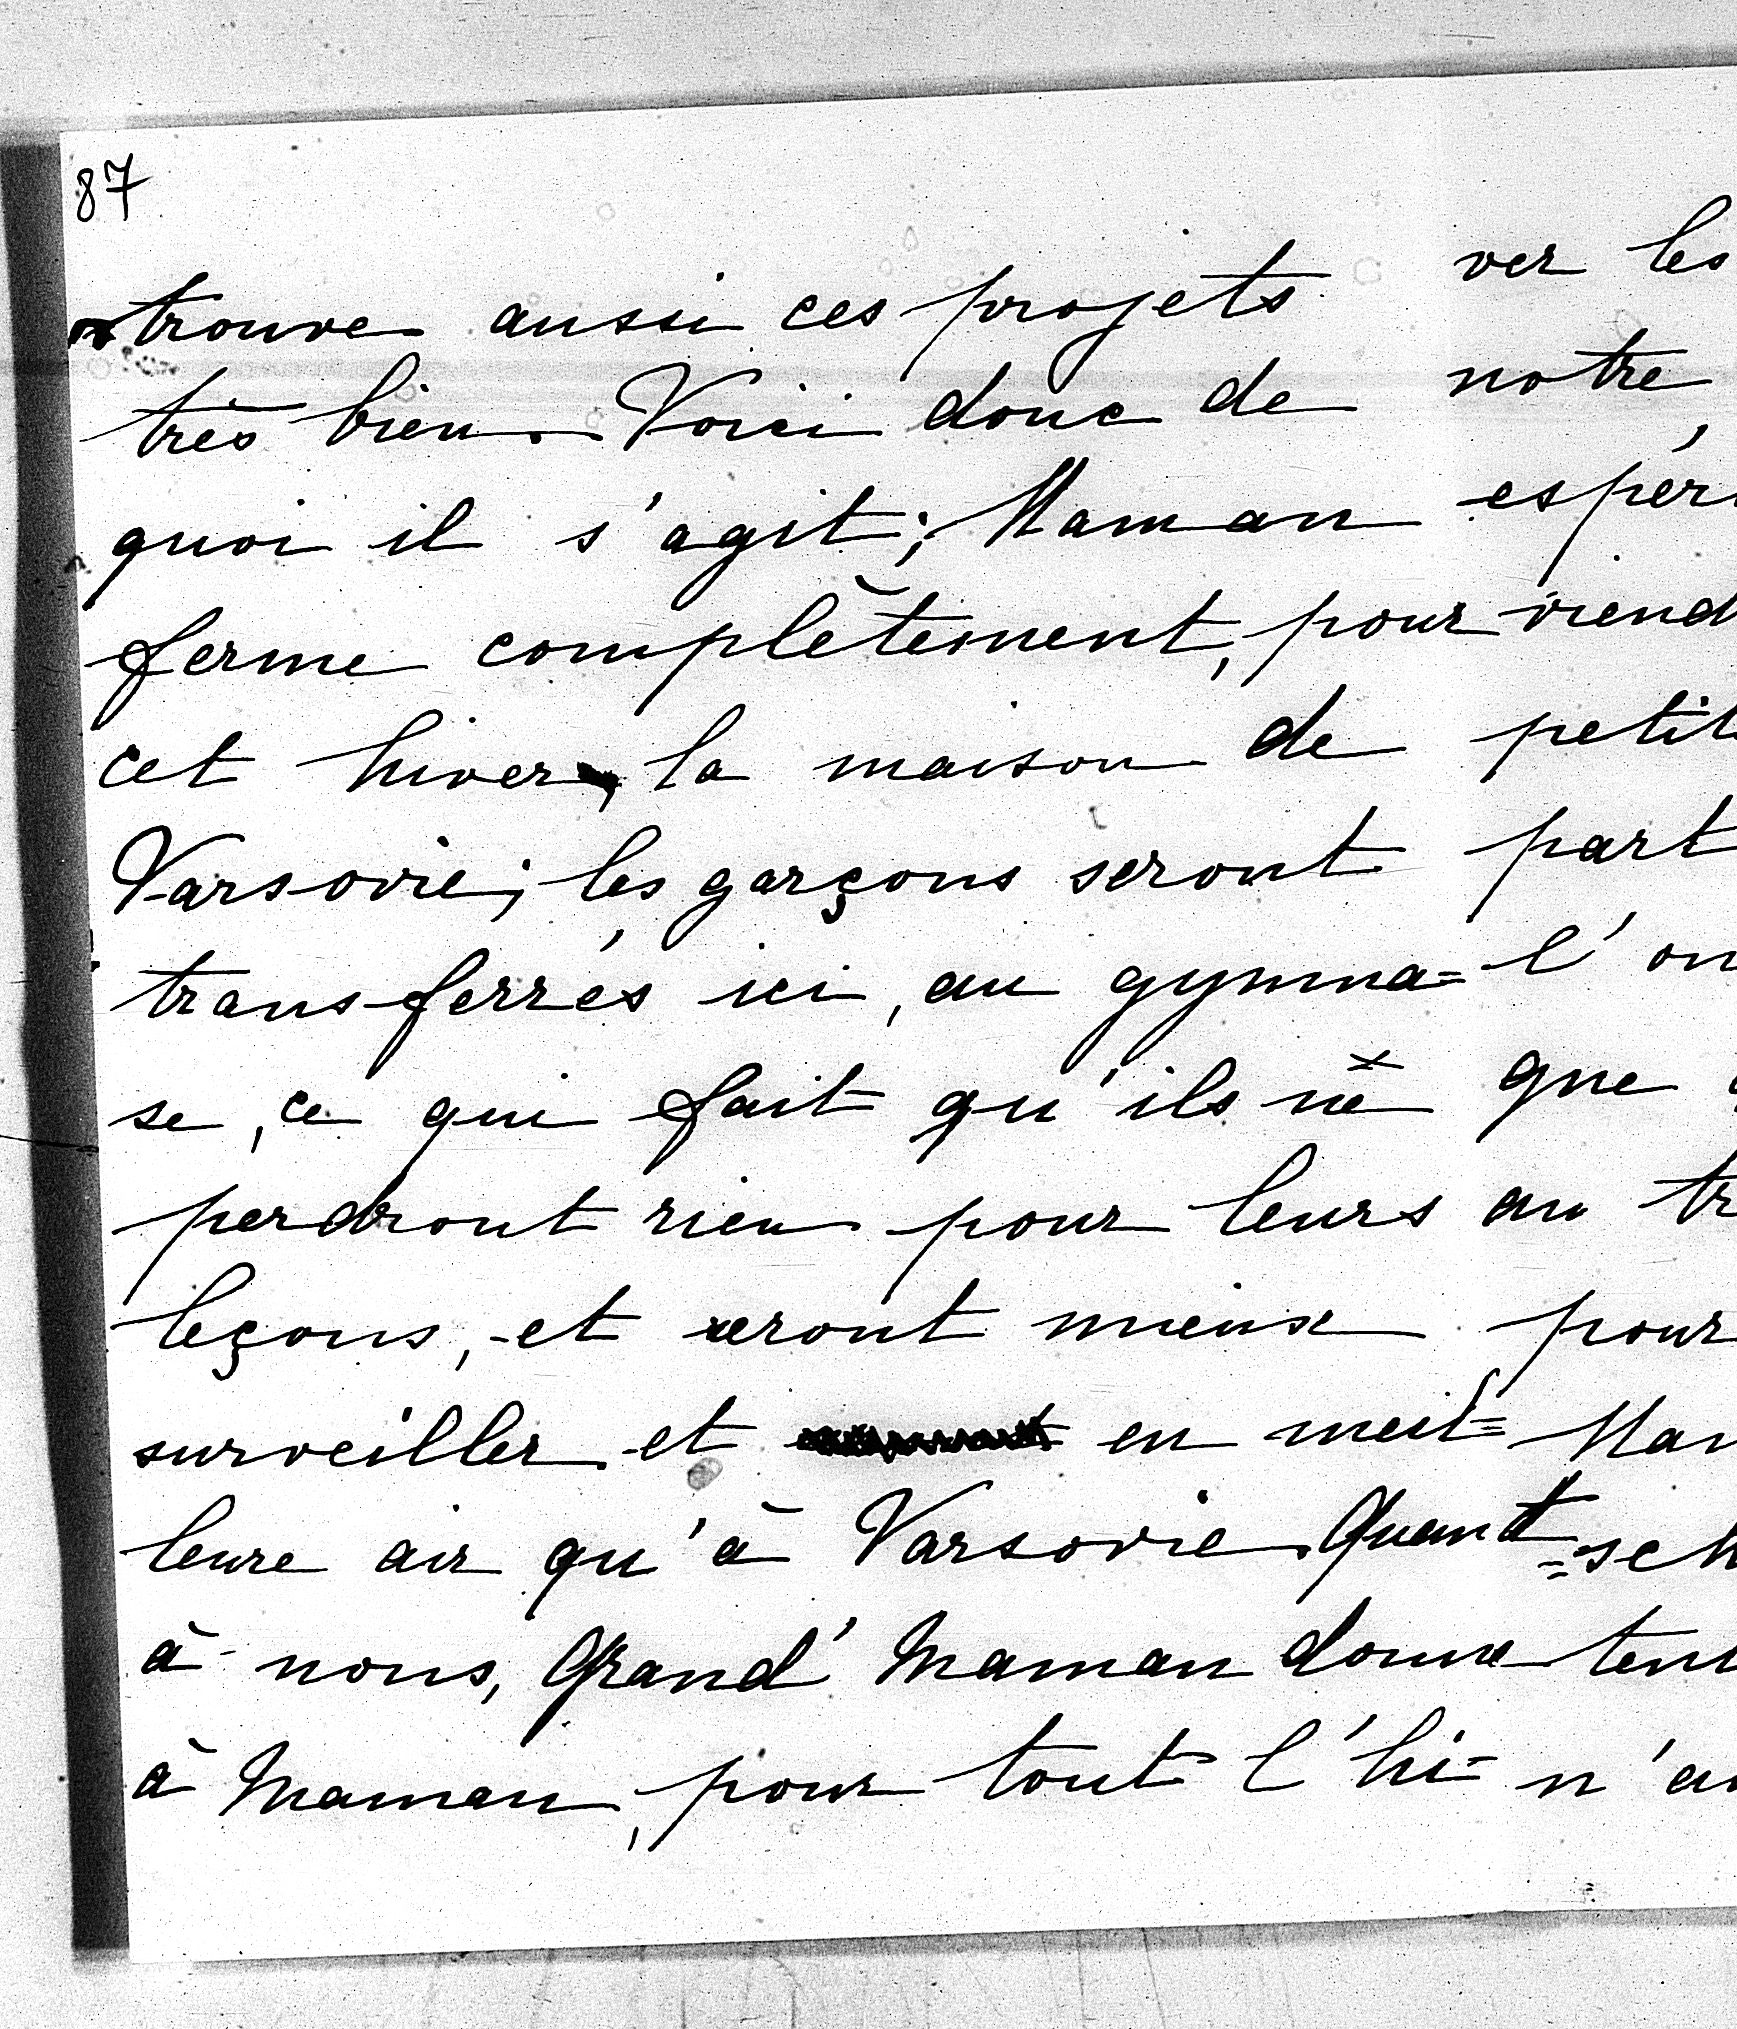 87
trouve aussi ces projets
très bien. Voici donc de
quoi il s'agit; Maman
ferme complètement, pour
cet hiver, la maison de
Varsovie; les garçons seront
transferrés ici, au gymna=
se, ce qui fait qu'ils ne
perdront rien pour leurs
leçons, et seront mieux
surveiller et en meil=
leure air qu'à Varsovie. Quant
à nous, Grand' Maman donne
à Maman, pour tout l'hi=
ver les
notre,
espér
viend
petit
part
l'on
que
au tr
pour
Mam
=sch
ten
n'au